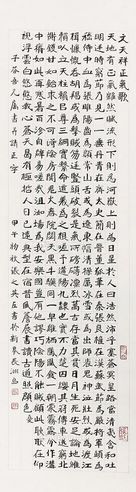 文天祥正氣歌
天地有正氣雜然賦流形下則為河嶽上則為日星於人曰浩然沛乎塞蒼冥皇路當清夷含和吐
明庭時窮節乃見一一垂丹青在齊太史簡在晉董狐筆在秦張良椎在漢蘇武節為嚴將軍頭為
嵇侍中血為張睢陽齒為顏常山舌或為遼東帽清操厲冰雪或為出師表鬼神泣壯烈或為渡江
楫慷慨吞胡羯或為擊賊笏逆豎頭破裂是氣所磅礡凜烈萬古存當其貫日月生死安足論地維
賴以立天柱賴以尊三綱實繫命道義為之根嗟予遘陽九隸也實不力楚囚纓其冠傳車送窮北
鼎鑊甘如飴求之不可得陰房闃鬼火春院閟天黑牛驥同一皂雞棲鳳凰食一朝蒙霧露分作溝
中瘠如此再寒暑百沴自辟易嗟哉沮洳場為我安樂國豈有他繆巧陰陽不能賊顧此耿耿在仰
視浮雲白悠悠我心悲蒼天曷有極哲人日已遠典型在夙昔風簷展書讀古道照顏色